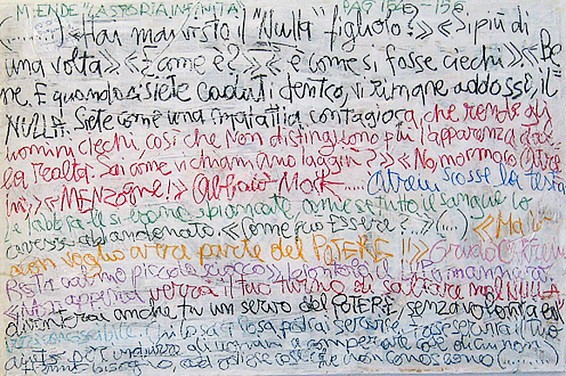 M. ENDE "LA STORIA INFINITA" PAG 154-156
(.......) «Hai mai visto il "Nulla" figliolo?» «Si più di
una volta» «¿come è?» «è come si fosse ciechi» «Be
ne. E quando ci siete caduti dentro, vi rimane addosso, il
NULLA. Siete come una malattia contagiosa, che rende gli
uomini ciechi, così che non distinguono più l'apparenza dal
la realtà. Sai come vi chiamano laggiù?» «No, mormorò Atre
iu,» «MENZOGNE!» Abbaiò Mork ..... Atreiu scosse la testa
Le labbra gli si erano sbiancate come se tutto il sangue lo
avesse abbandonato. «Come può essere?» (....) «Ma io
non voglio avere parte del POTERE!!» Gridò Atreiu
calmo piccolo sciocco» il lupo mannaro
«Non appena verrà il tuo turno di saltare nel NULLA
diventerai anche tu un servo del POTERE, senza volontà e
Chi lo sa a cosa potrai servire, forse sarà il tuo
aiuto per indurre gli uomini a comperare cose di cui non
hanno bisogno, ad odiare cose che non conoscono (.........)